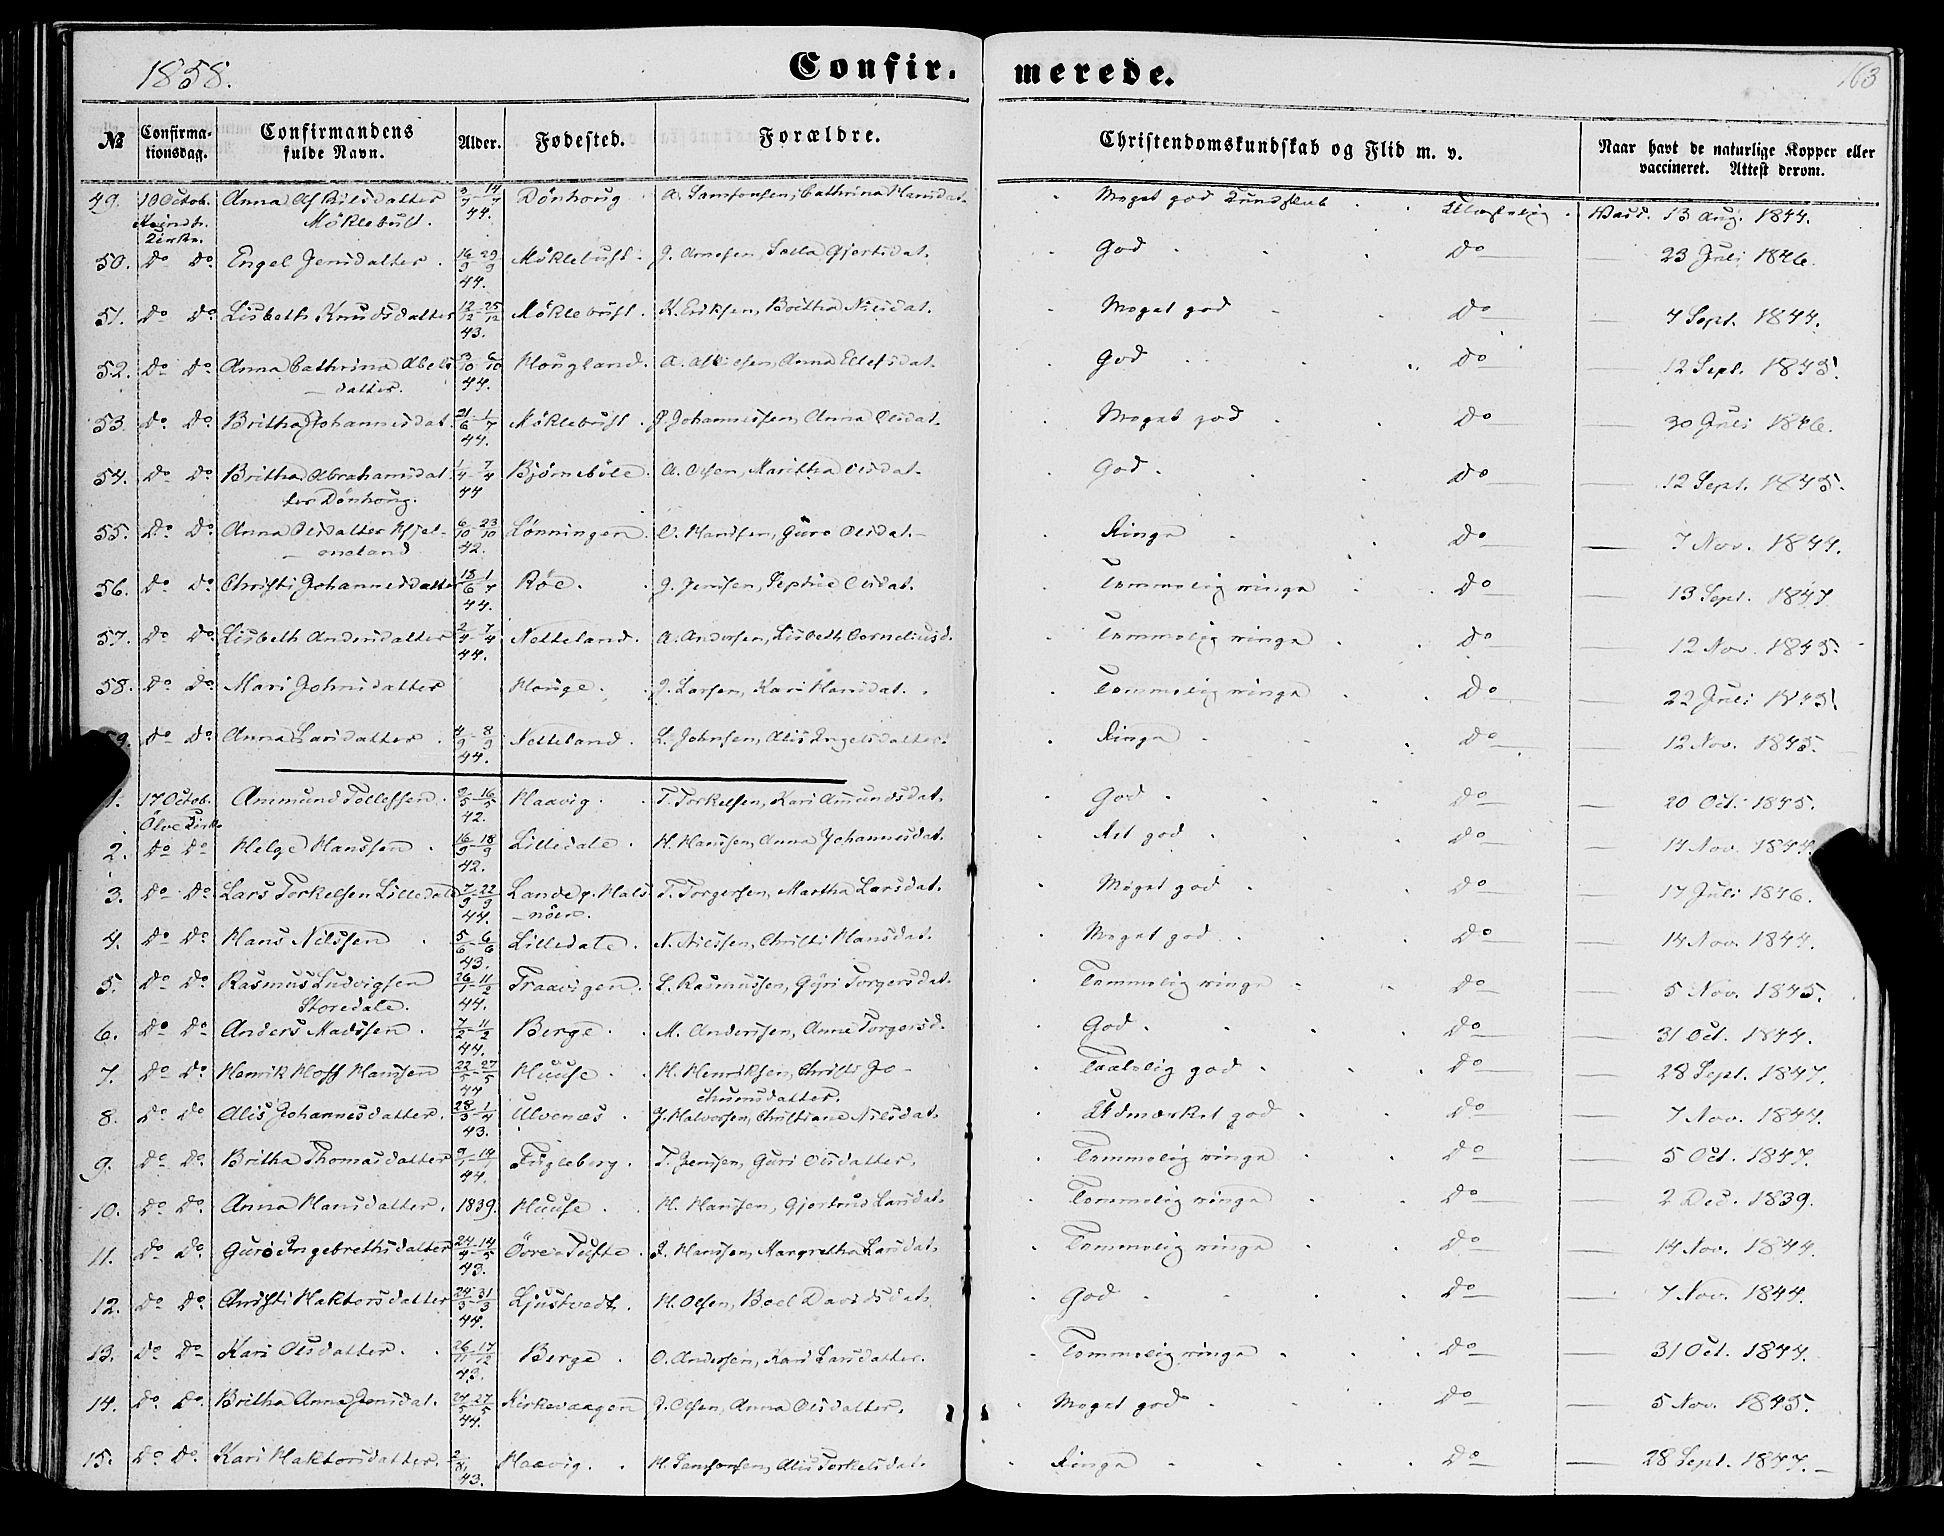 1858.
Confir-merede.
163
№ Confirma-tionsdag. Confirmandens fulde Navn. Alder. Fødested. Forældre. Christendomskundskab og Flid m. v. Naar havt de naturlige Kopper eller vaccineret. Attest derom.
49. 10 Octob. Anna Dønhoug A. Samsonsen, Cathrina Hansdat. Meget god Kundskab Vacc. 13 Aug. 1844.
Kirke. Möklebust. 44.
50. Do Do Engel Jensdatter. 16/9-29/9 44. Möklebust. J. Arnesen, Gjertsdat. God Do — 23 Juli 1846.
51. Do Do Lisbeth Knudsdatter 12/12-25/12 43. Möklebust. K. Eriksen, Britha Nilsdat. Meget god Do — 4 Sept. 1844.
52. Do Do Anna Cathrina Abels 3/10-6/10 Hougland. Anna God Do — 12 Sept. 1845.
datter. 44.
53. Do Do Britha Johannesdat. 21/6-1/7 44. Möklebust. J. Johannessen, Anna Olsdat. Meget god Do — 30 Juli 1846.
54. Do Do Britha Abrahamsdat 1/4-7/4 Bjørnebøle. A. Olsen, Maritha Olsdat. God. Do — 12 Sept. 1845.
ter Dønhoug. 44
55. Do Do Anna Olsdatter 6/10-23/10 Lønningen O. Hansen, Guro Olsdat. Ringe Do — 7 Nov. 1844.
42.
56. Do Do Christi Johannesdatter 15/6-1/7 44. Røe. J. Jensen, Olsdat. Temmelig ringe Do — 13 Sept. 1847
57. Do Do Lisbeth Andersdatter 2/4-7/4 44. Netteland. A. Andersen, Lisbeth Corneliusd. Temmelig ringe Do — 12 Nov. 1845.
58. Do Do Mari Johnsdatter Houge. J. Larsen, Kari Hansdat. Temmelig ringe Do — 22 Juli 1845
59. Do Do Anna Larsdatter. 4/9-8/9 44. Netteland. L. Johnsen, Alis Ingelsdatter. Ringe Do — 12 Nov. 1845.
1. 17 Octob. Ammund Tollefsen. 9/5-16/5 42. Haavig. T. Torkelsen, Kari Amundsdat. God Do — 20 Oct. 1845.
Ølve Kirke
2. Do Do Helge Hanssen. 16/9-18/9 42. Lilledale. H. Hanssen, Anna Johannesdat. Ret god Do — 14 Nov. 1844.
3. Do Do Lars Torkelsen Lilledale 7/9-22/9 Lande p. Hals T. Torgersen, Martha Larsdat. Meget god Do — 17 Juli 1846.
44. -nöen.
4. Do Do Hans Nilssen 5/6-6/6 43. Lilledale. N. Nilssen, Christi Hansdat. Meget god Do — 14 Nov. 1844.
5. Do Do Rasmus Ludvigsen 26/1-11/2 Traavigen. L. Rasmussen, Gyri Torgersdat. Temmelig ringe Do — 5 Nov. 1845.
Storedale. 44.
6. Do Do Anders Madssen. 7/2-11/2 44. Berge. M. Anderssen, Anne Torgersd. God. Do — 31 Oct. 1844.
7. Do Do Henrik Hoff Hanssen 22/5-27/5 44 Huuse. H. Henriksen, Christi Jo- Taalelig god Do — 28 Sept. 1847.
chumsdatter.
8. Do Do Alis Johannesdatter. 28/3-1/4 43. Ulvenæs J. Halvorsen, Christiane Nilsdat. Udmærket god Do — 7 Nov. 1844.
9. Do Do Britha Thomasdatter 9/1-14/1 44. Fugleberg. T. Jenssen, Guri Olsdatter. Temmelig ringe Do — 5 Oct. 1847.
10. Do Do Anna Hansdatter. 1839. Huuse. H. Hanssen, Gjertrud Larsdat. Temmelig ringe Do — 2 Dec. 1839.
11. Do Do Guro Ingebrethsdatter 24/4-14/5 43. Øvre Tufte. J. Hanssen, Margretha Larsdat. Temmelig ringe Do — 14 Nov. 1844.
12. Do Do Christi Haktorsdatter 24/3-31/3 44. Ljustvedt. H. Olsen, Boel Davidsdat. God Do — 7 Nov. 1844.
13. Do Do Kari Olsdatter. 26/11-17/12 43. Berge. O. Andersen, Kari Larsdatter. Temmelig ringe Do — 31 Oct. 1844.
14. Do Do Britha Anna Jensdat. 24/5-27/5 44. Kirkevaagen J. Olsen, Anna Olsdatter. Meget god Do — 5 Nov. 1845.
15. Do Do Kari Haktorsdatter. 43. Haavig. H. Samsonsen, Alis Torkelsdat. Ringe Do — 28 Sept. 1847.